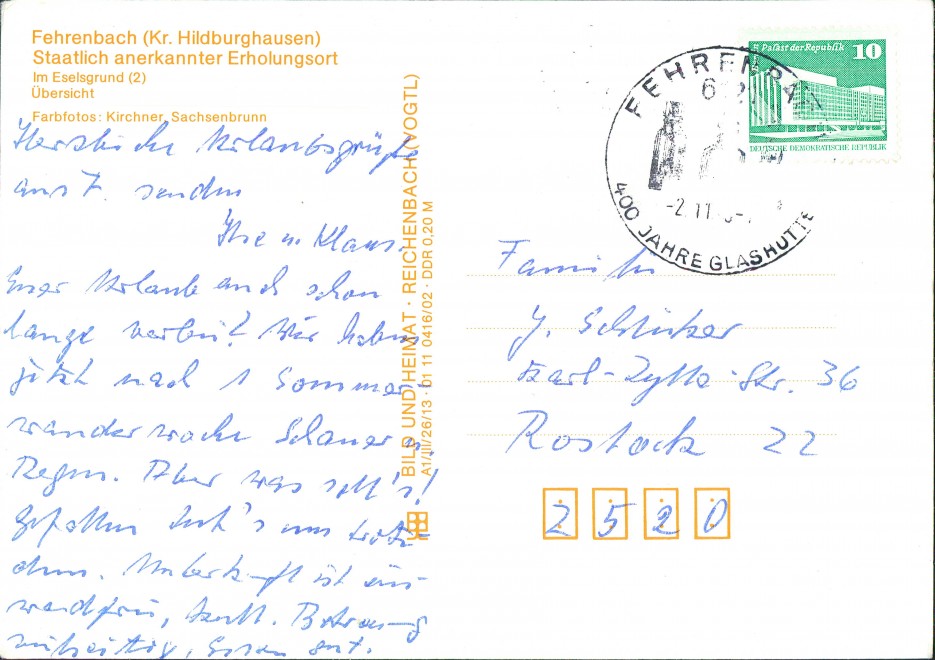 Fehrenbach (Kr. Hildburghausen)
Staatlich anerkannter Erholungsort
Im Eselsgrund (2)
Übersicht
Farbfotos: Kirchner, Sachsenbrunn
Herzliche Urlaubsgrüße
aus F. senden
Ihre u. Klaus.
Euer Urlaub auch schon
lange vorbei? Wir haben
jetzt nach 1 Sommer-
wanderwoche Schauer u.
Regen. Aber was soll's!
Gefallen tut's uns trotz-
dem. Unterkunft ist ein-
wandfrei, Betreuung
Essen gut.
BILD UND HEIMAT · REICHENBACH (VOGTL)
A1/III/26/13 · 01 11 0416/02 · DDR 0,20 M
Palast der Republik 10
DEUTSCHE DEMOKRATISCHE REPUBLIK
FEHRENBA
400 JAHRE GLASHÜTTE
-2.11
Familie
-Str. 36
Rostock 22
2520